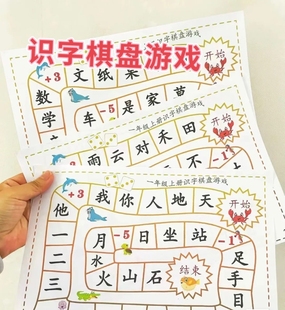 识字棋盘游戏
+3 文 纸 果
开始
数
学
文
-5 是 家 苗
车
一年级上册识字棋盘游戏
+3 雨 云 对 禾 田
开始
-1
一年级上册识字棋盘游戏
+3 我 你 人 地 天
开始
他
一
二
三
月 -5 日 坐 站 -1
水
火 山 石
结束
足
手
目